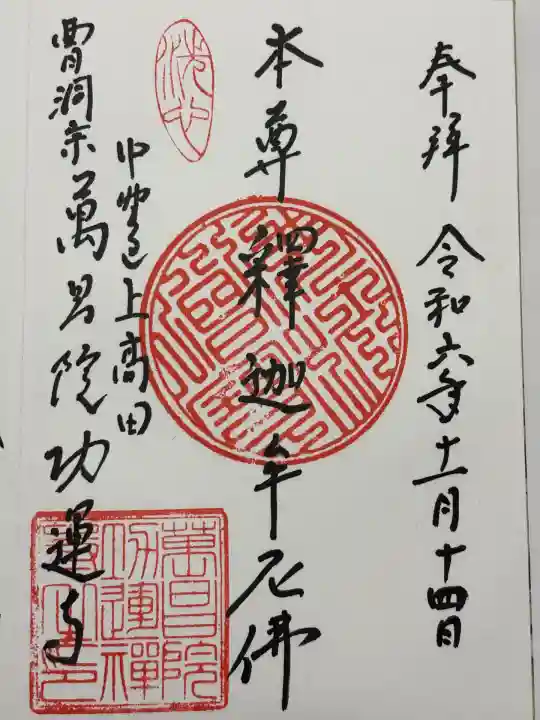 奉拜 令和六年十一月十四日
本尊 釋迦牟尼佛
中野区上高田
曹洞宗 萬昌院功運寺
萬昌院
功運禪
寺之印